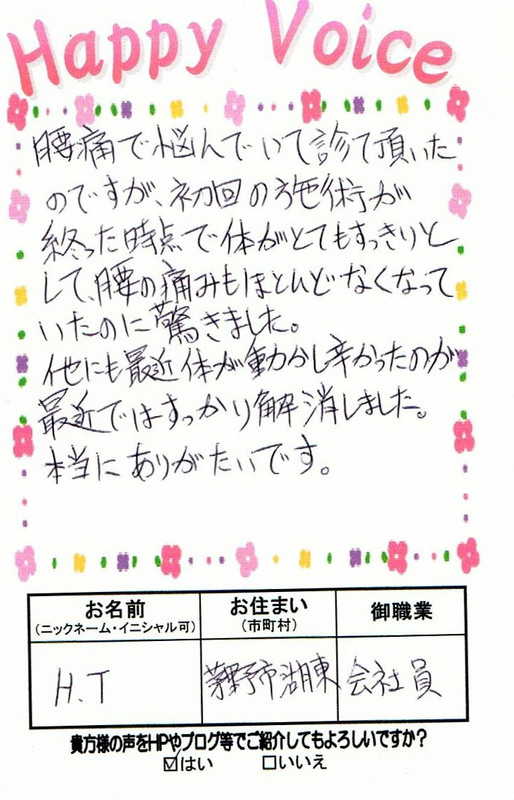 Happy Voice
腰痛で悩んでいて診て頂いた
のですが、初回の施術が
終った時点で体がとてもすっきりと
して、腰の痛みもほとんどなくなって
いたのに驚きました。
他にも最近体が動かし辛かったのが
最近ではすっかり解消しました。
本当にありがたいです。
お名前 お住まい 御職業
(ニックネーム・イニシャル可) (市町村)
H.T 茅野市湖東 会社員
貴方様の声をHPやブログ等でご紹介してもよろしいですか?
☑はい □いいえ